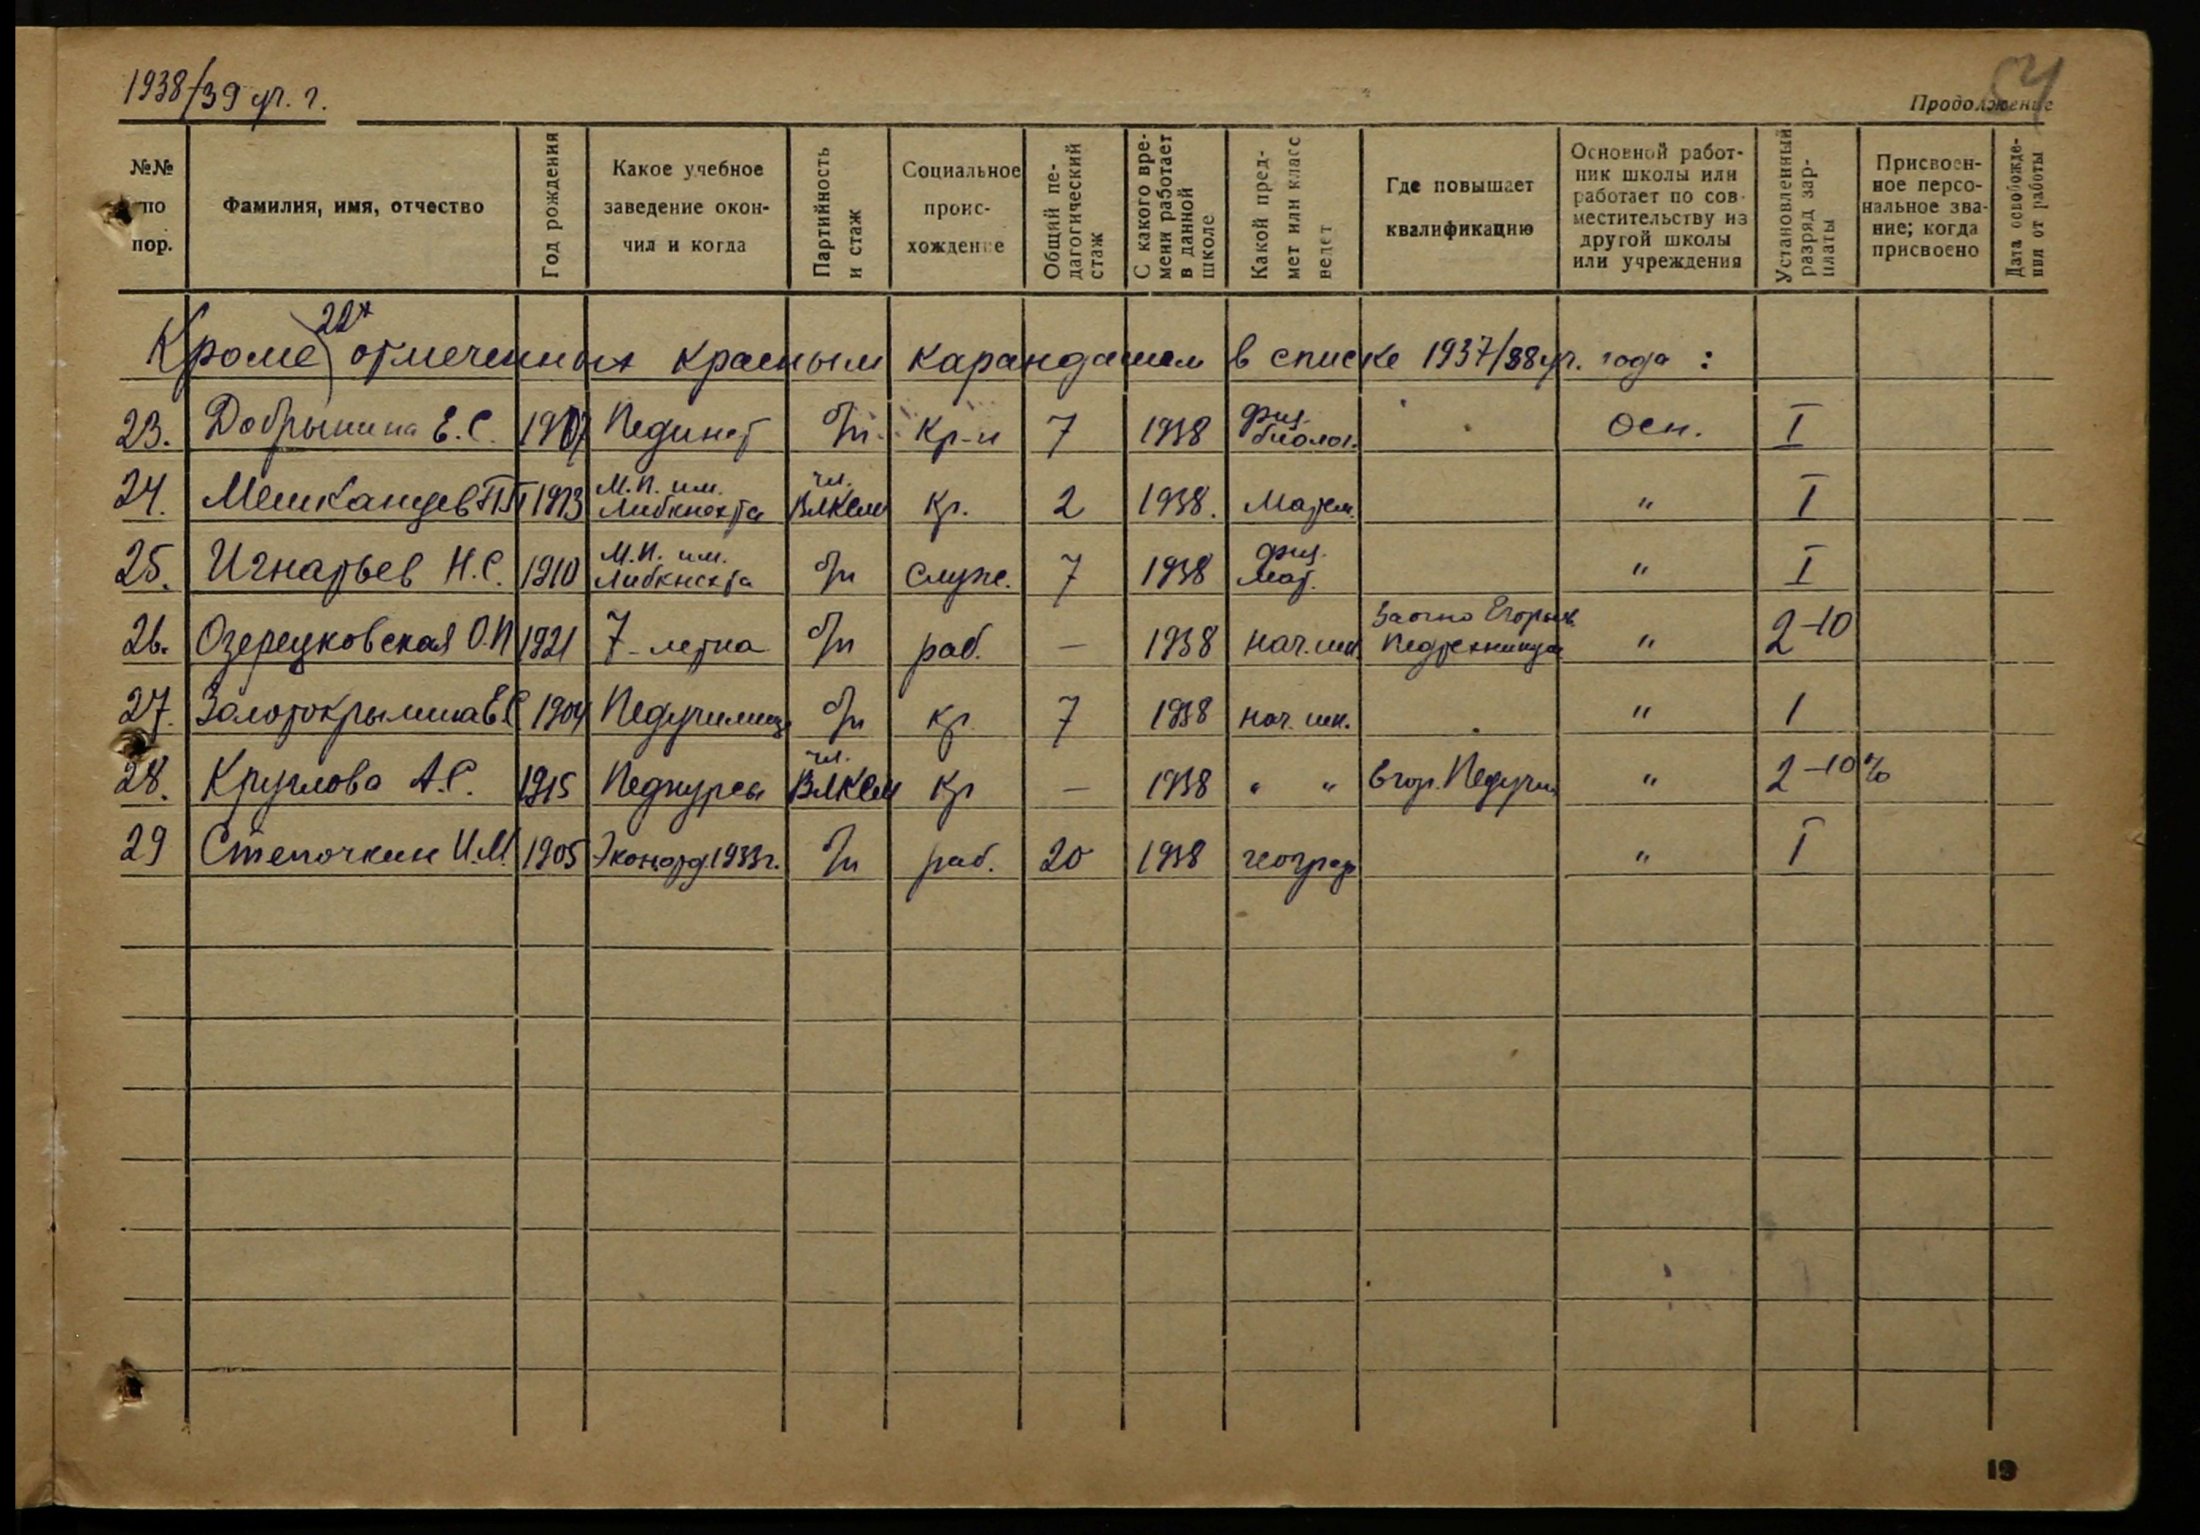 1938/39 уч. г.
54
Продолжение
№№ по пор.
Фамилия, имя, отчество
Год рождения
Какое учебное заведение окончил и когда
Партийность и стаж
Социальное происхождение
Общий педагогический стаж
С какого времени работает в данной школе
Какой предмет или класс ведет
Где повышает квалификацию
Основной работник школы или работает по совместительству из другой школы или учреждения
Установленный разряд зарплаты
Присвоенное персональное звание; когда присвоено
Дата освобождения от работы
Кроме 22х отмеченных красным карандашом в списке 1937/38 уч. года :
23. Добрынина Е.С. 1907 Пединст б/п. кр-н 7 1938 физ. биолог. Осн. I
24. Мешканцев 1913 М.П. им. Либкнехта чл. ВЛКСМ кр. 2 1938. Матем. " I
25. Игнатьев Н.С. 1910 М.П. им. Либкнехта б/п служ. 7 1938 физ. мат. " I
26. Озерецковская О.П 1921 7-летка б/п раб. — 1938 нач. шк. Заочно Егорьев. Педтехникум " 2-10
27. Золотокрылина Е.С 1904 Педучилищ б/п кр. 7 1938 нач. шк. " I
28. Круглова А.С. 1915 Педкурсы чл. ВЛКСМ кр — 1938 " " Егор. Педучил " 2-10%
29 Стёпочкин И.М. 1905 1933г. б/п раб. 20 1938 географ " I
19